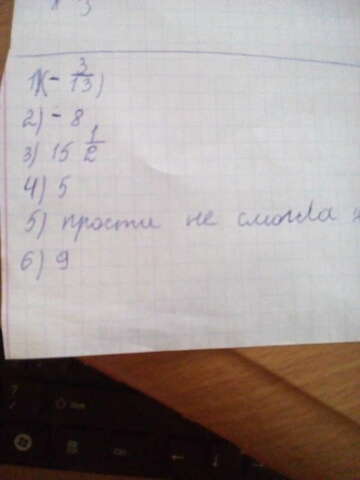 1)(- 3/13)
2) - 8
3) 15 1/2
4) 5
5) прости не смогла
6) 9